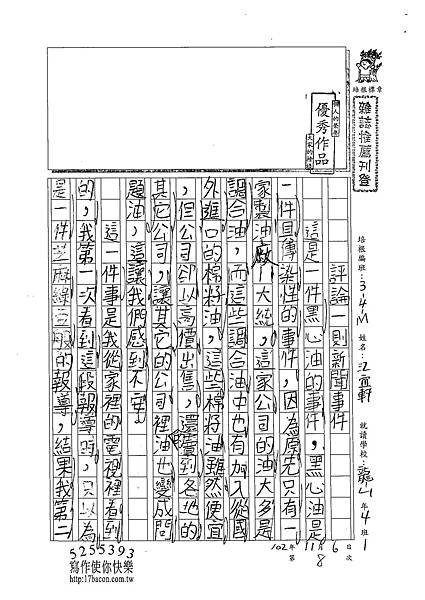 培根標章
雜誌推薦刊登
優秀作品
培根編班：34M 姓名：江宜軒 就讀學校：龍山 年4班1
評論一則新聞事件
這是一件黑心油的事件，黑心油是
一件具傳染性的事件，因為原先只有一
家製油廠｜大統，這家公司的油大多是
調合油，而這些調合油中也有加入從國
外進口的棉籽油，這些棉籽油雖然便宜
，但公司卻以高價出售，還賣到各地的
其它公司，讓其它的公司裡油也變成問
題油，這讓我們感到不安。
這一件事是我從家裡的電視裡看到
的，我第一次看到這段報導時，只以為
是一件芝麻綠豆般的報導，結果我第二
102年11月6日
第8次
5255393
寫作使你快樂
http://17bacon.com.tw